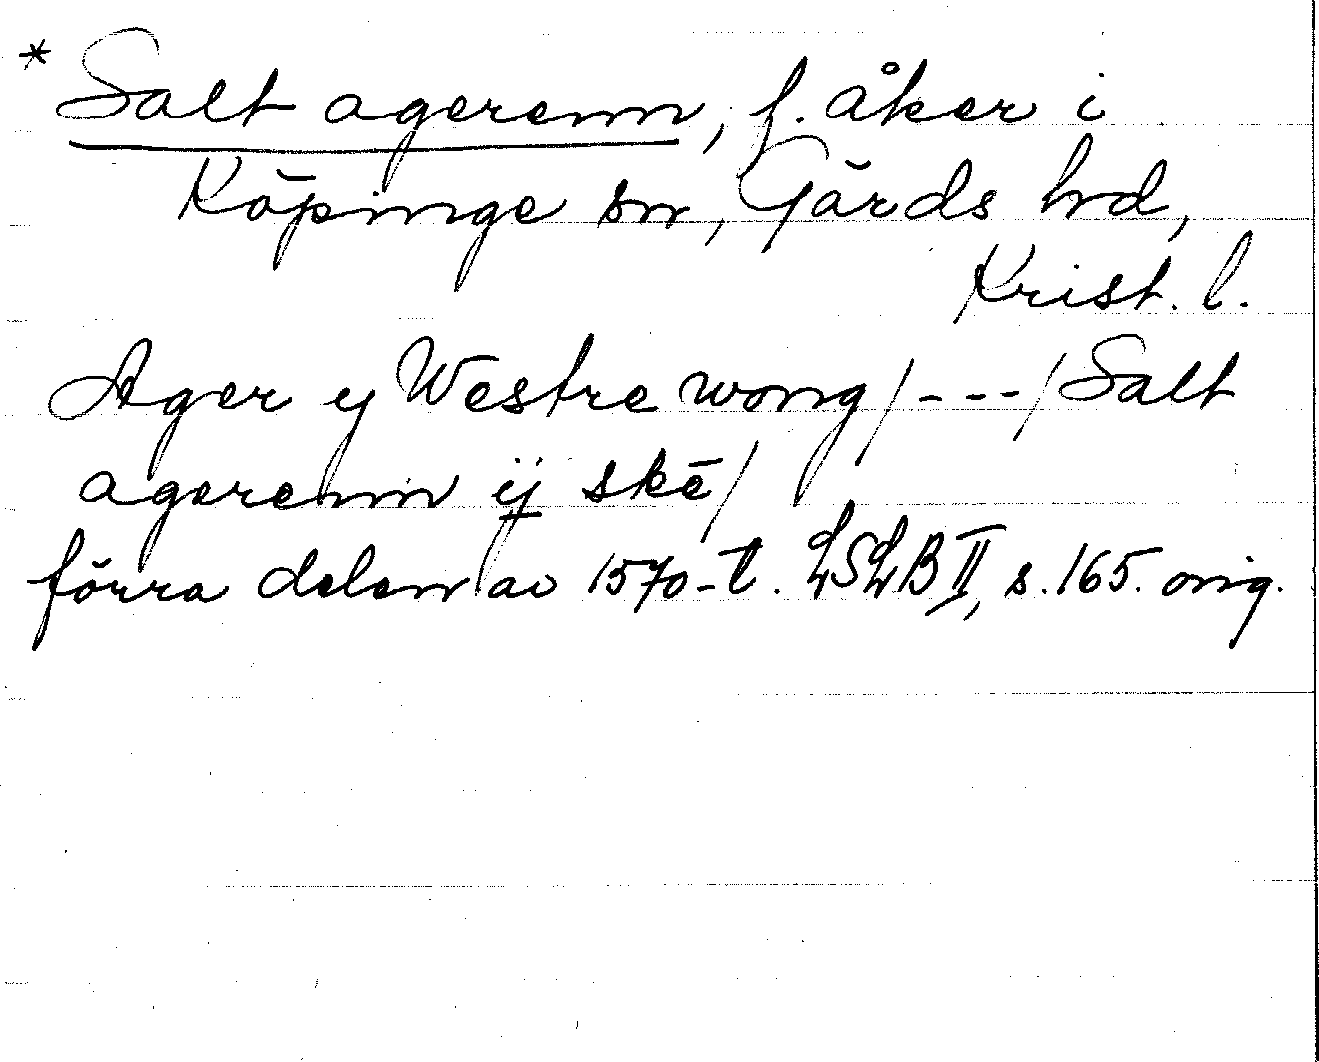 * Salt agerenn, f. åker i
Köpinge sn, Gärds hrd,
Krist. l.
Ager y Westre wong / --- / Salt
agerenn ij skē /
förra delen av 1570-t. LSLB II, s. 165. orig.